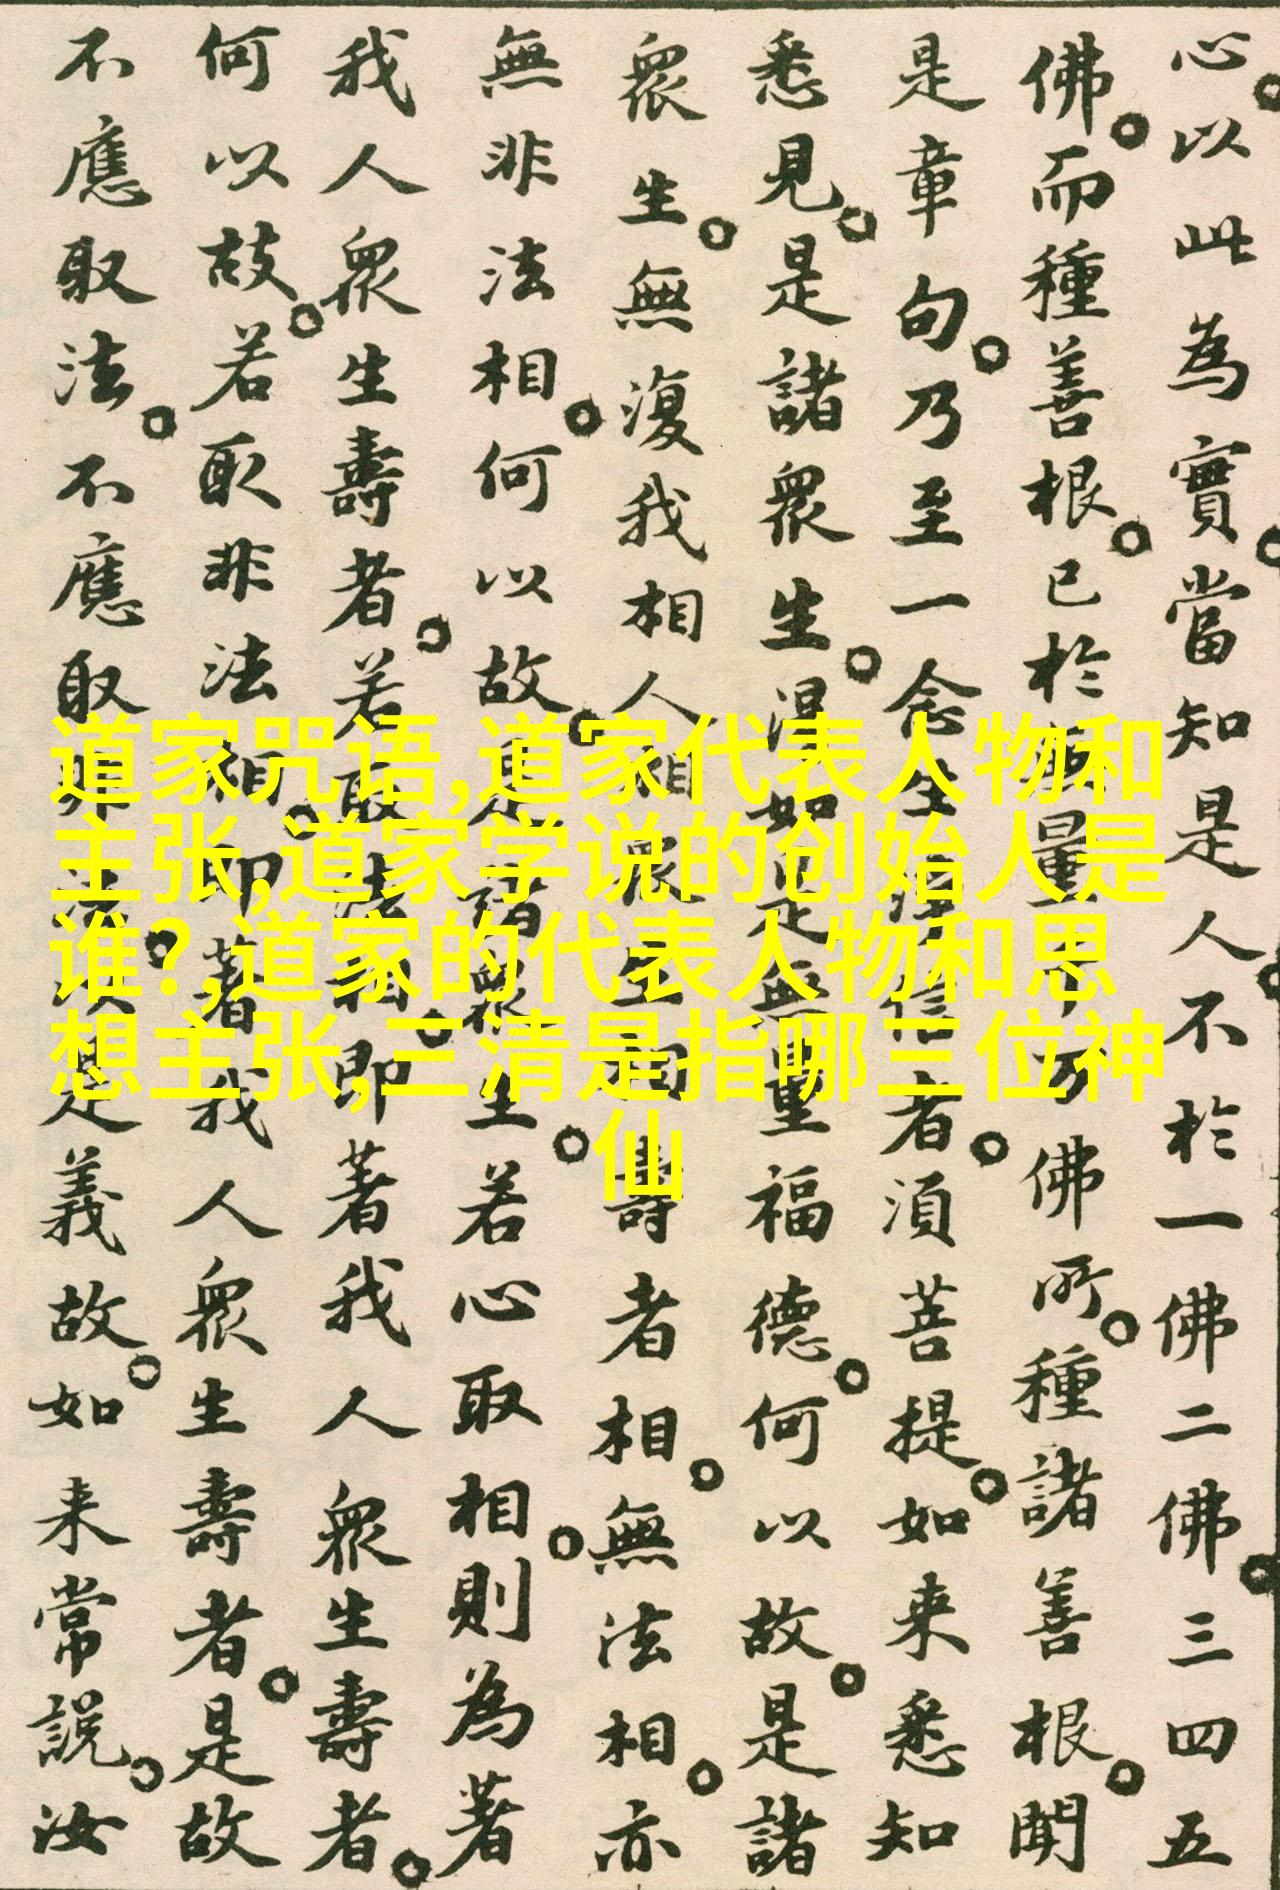 心以此為實當知是人不於一佛二佛三四五
佛而種善根已於無量千万佛所種諸善根聞
是章句乃至一念生淨信者須菩提如来悉知
悉見是諸眾生得如是無量福德何以故是諸
眾生無復我相人相眾生相壽者相無法相亦
無非法相何以故是諸眾生若心取相則為著
我人眾生壽者若取法相即著我人眾生壽者
何以故若取非法相即著我人眾生壽者是故
不應取法不應取非法以是義故如来常說汝
道家咒语,道家代表人物和
主张,道家学说的创始人是
谁?,道家的代表人物和思
想主张,三清是指哪三位神
仙